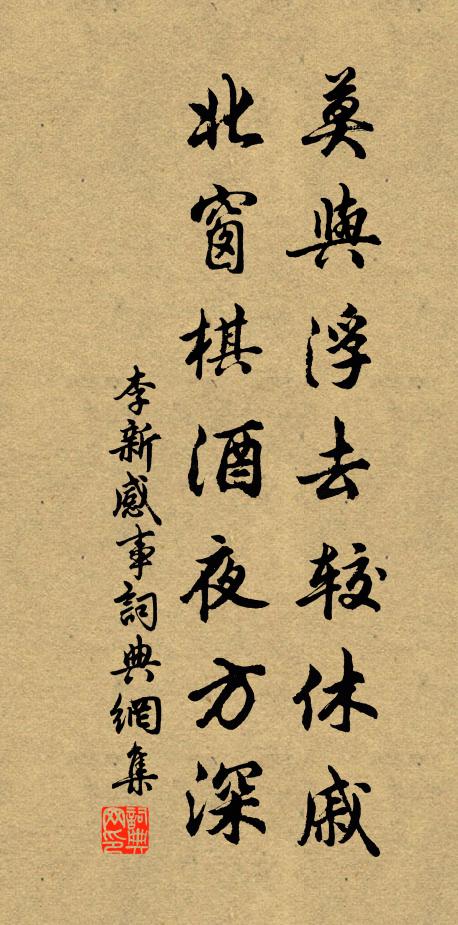 莫與浮去較休戚
北窗棋酒夜方深
李新感事詞典網集
詞典网印